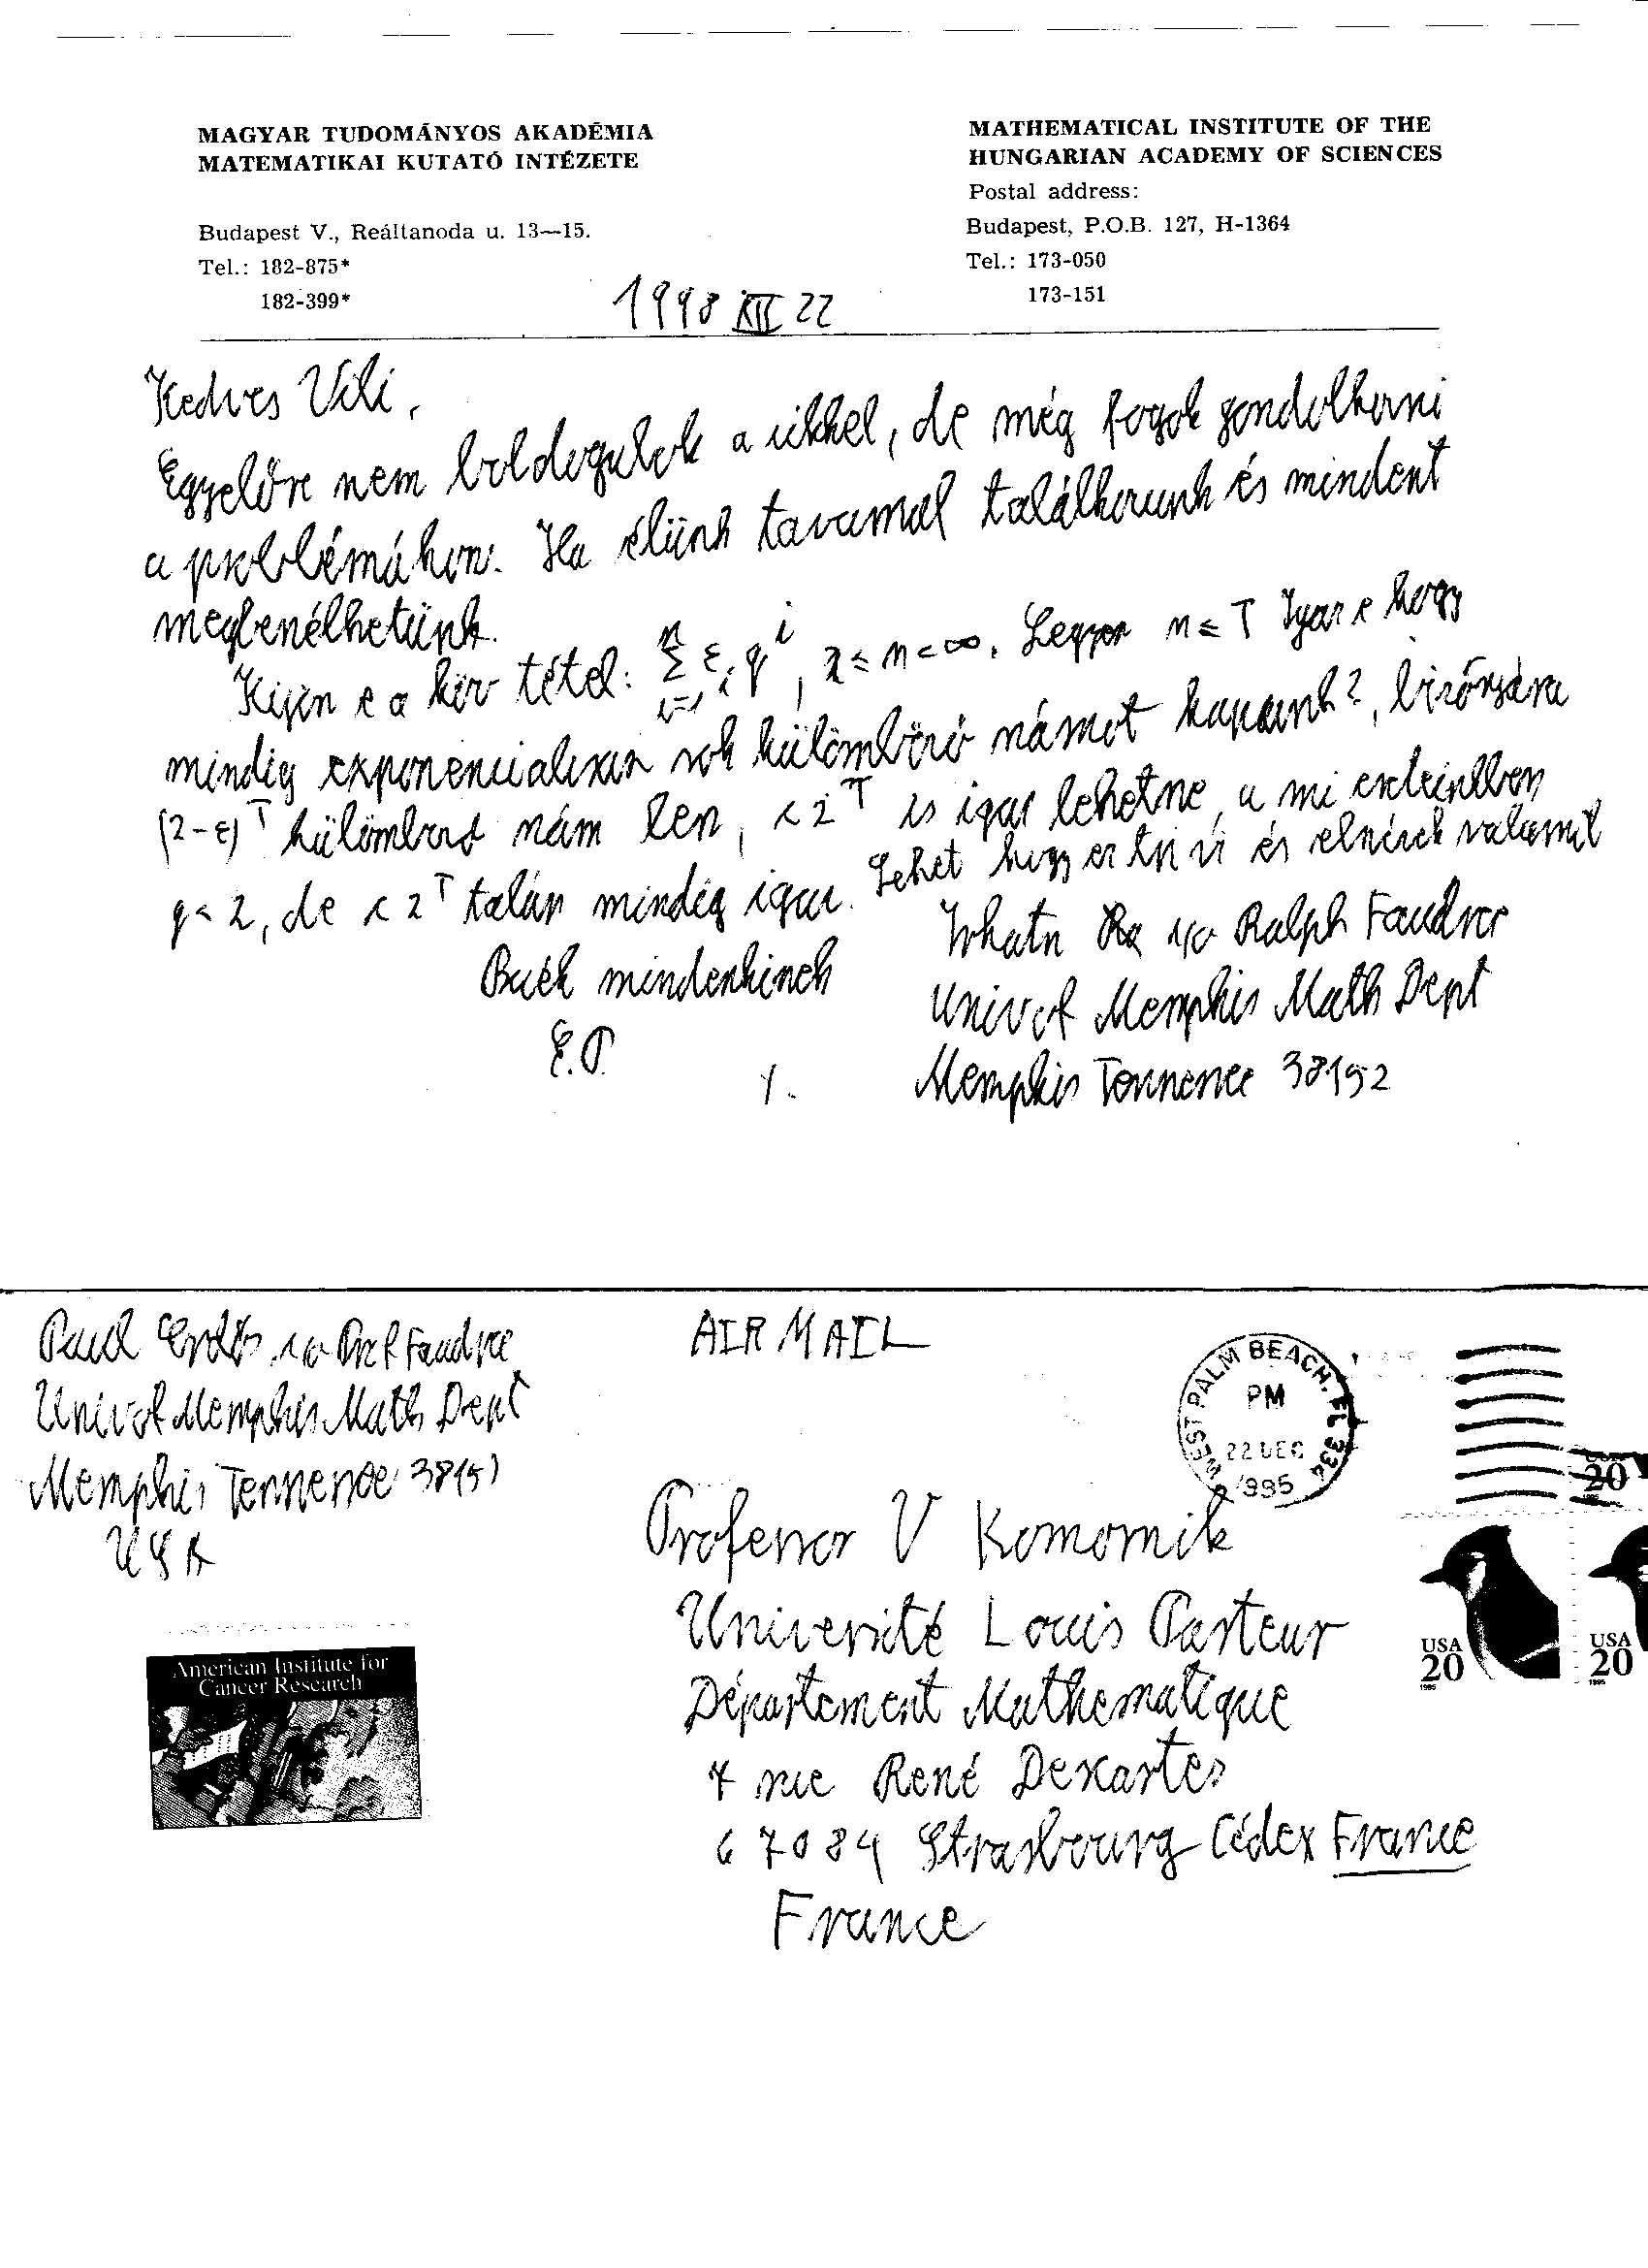 MAGYAR TUDOMÁNYOS AKADÉMIA
MATEMATIKAI KUTATÓ INTÉZETE
Budapest V., Reáltanoda u. 13—15.
Tel.: 182-875*
182-399*
MATHEMATICAL INSTITUTE OF THE
HUNGARIAN ACADEMY OF SCIENCES
Postal address:
Budapest, P.O.B. 127, H-1364
Tel.: 173-050
173-151
1998 XII 22
Kedves Vili,
Egyelőre nem boldogulok a cikkel, de még fogok gondolkozni
a problémákon. Ha élünk tavasszal találkozunk és mindent
megbeszélhetünk.
Kijön e a köv tétel: n Σ i=1 ε_i q^i, 1 ≤ n < ∞. Legyen n ≤ T Igaz e hogy
mindig exponenciálisan sok külömböző számot kapunk?, bizonyára
(2-ε)^T külömböző szám lesz, c 2^T is igaz lehetne, a mi eseteinkben
q < 2, de c 2^T talán mindig igaz. Lehet hogy ez trivi és elnézek valamit
Buék mindenkinek
E.P.
c/o Ralph Faudree
Univ of Memphis Math Dept
Memphis Tennessee 38152
Paul Erdős c/o Prof Faudree
Univ of Memphis Math Dept
Memphis Tennessee 3815)
USA
American Institute for
Cancer Research
AIR MAIL
WEST PALM BEACH, FL 334
PM
22 DEC
1995
Professor V Komornik
Université Louis Pasteur
Département Mathematique
7 rue René Descartes
67084 Strasbourg Cédex France
France
20
USA
20
1995
USA
20
1995